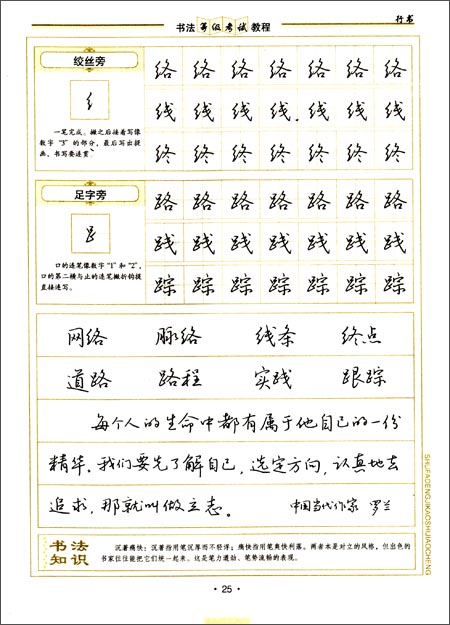 书法等级考试教程
行书
绞丝旁
络 络 络 络 络 络 络
一笔完成。撇之后接着写像
线 线 线 线 线 线 线
数字“3”的部分，最后写出提
画，书写要连贯。
终 终 终 终 终 终 终
足字旁
路 路 路 路 路 路 路
践 践 践 践 践 践 践
口的连笔像数字“1”和“2”，
口的第二横与止的连笔撇折钩提
直接连写。
踪 踪 踪 踪 踪 踪 踪
网络 脉络 线条 终点
道路 路程 实践 跟踪
每个人的生命中都有属于他自己的一份
精华。我们要先了解自己，选定方向，认真地去
追求，那就叫做立志。 中国当代作家 罗兰
书法
知识
沉著痛快：沉著指用笔沉厚而不轻浮；痛快指用笔爽快利落。两者本是对立的风格，但出色的
书家往往能把它们统一起来。这是笔力遒劲、笔势流畅的表现。
SHUFADENGJIKAOSHIJIAOCHENG
·25·